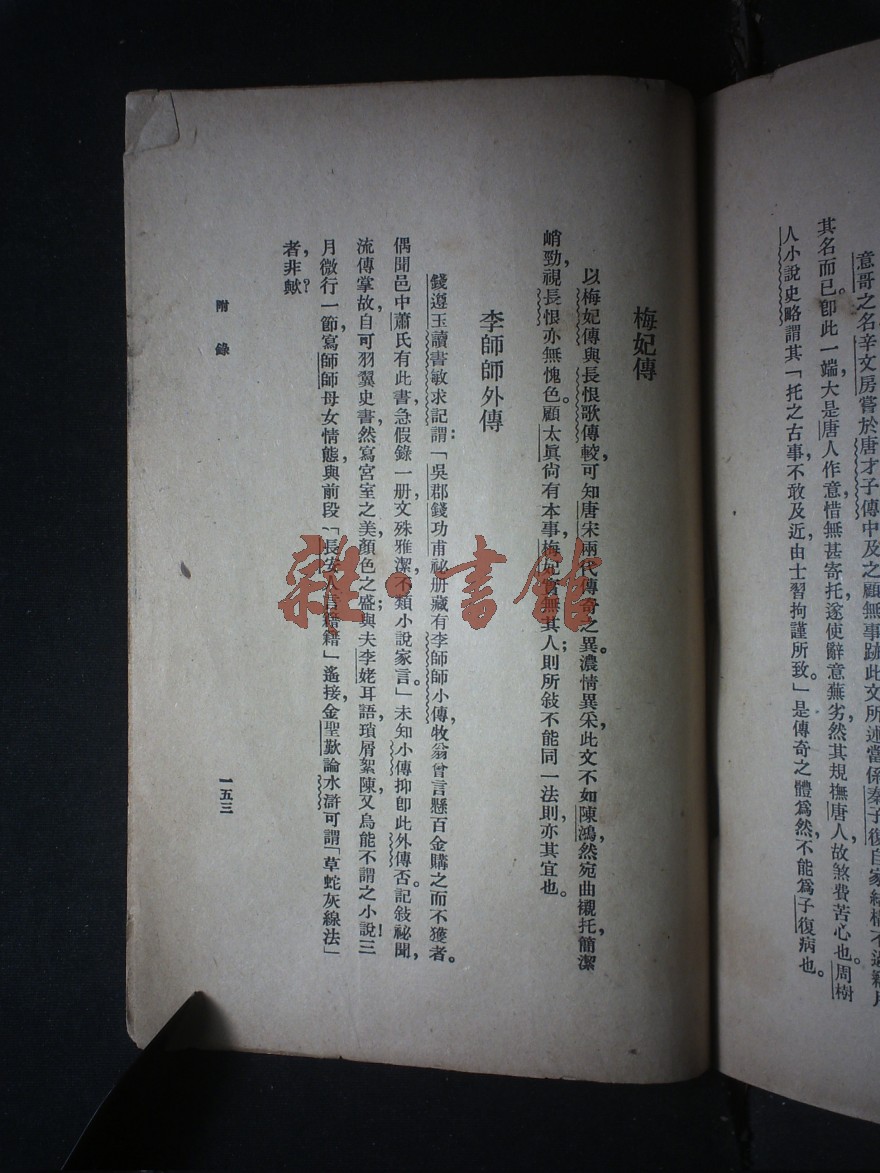 意哥之名辛文房嘗於唐才子傳中及之顧無事跡此文所述當係秦子復自家結構不過藉用
其名而已。卽此一端，大是唐人作意，惜無甚寄托，遂使辭意蕪劣，然其規撫唐人，故煞費苦心也。周樹
人小說史略謂其「托之古事，不敢及近，由士習拘謹所致」是傳奇之體爲然，不能爲子復病也。
梅妃傳
以梅妃傳與長恨歌傳較，可知唐宋兩代傳奇之異。濃情異采，此文不如陳鴻，然宛曲襯托，簡潔
峭勁，視長恨亦無愧色。顧太眞尙有本事，梅妃實無其人；則所敍不能同一法則，亦其宜也。
李師師外傳
錢遵王讀書敏求記謂：「吳郡錢功甫祕册藏有李師師小傳，牧翁曾言懸百金購之而不獲者。
偶聞邑中蕭氏有此書，急假錄一册。文殊雅潔，不類小說家言。」未知小傳抑卽此外傳否。記敍祕聞，
流傳掌故，自可羽翼史書，然寫宮室之美，顏色之盛；與夫李姥耳語，瑣屑絮陳，又烏能不謂之小說！三
月微行一節，寫師師母女情態，與前段「長安人言籍籍」遙接，金聖歎論水滸可謂「草蛇灰線法」
者，非歟？
附錄
一五三
雜·書館